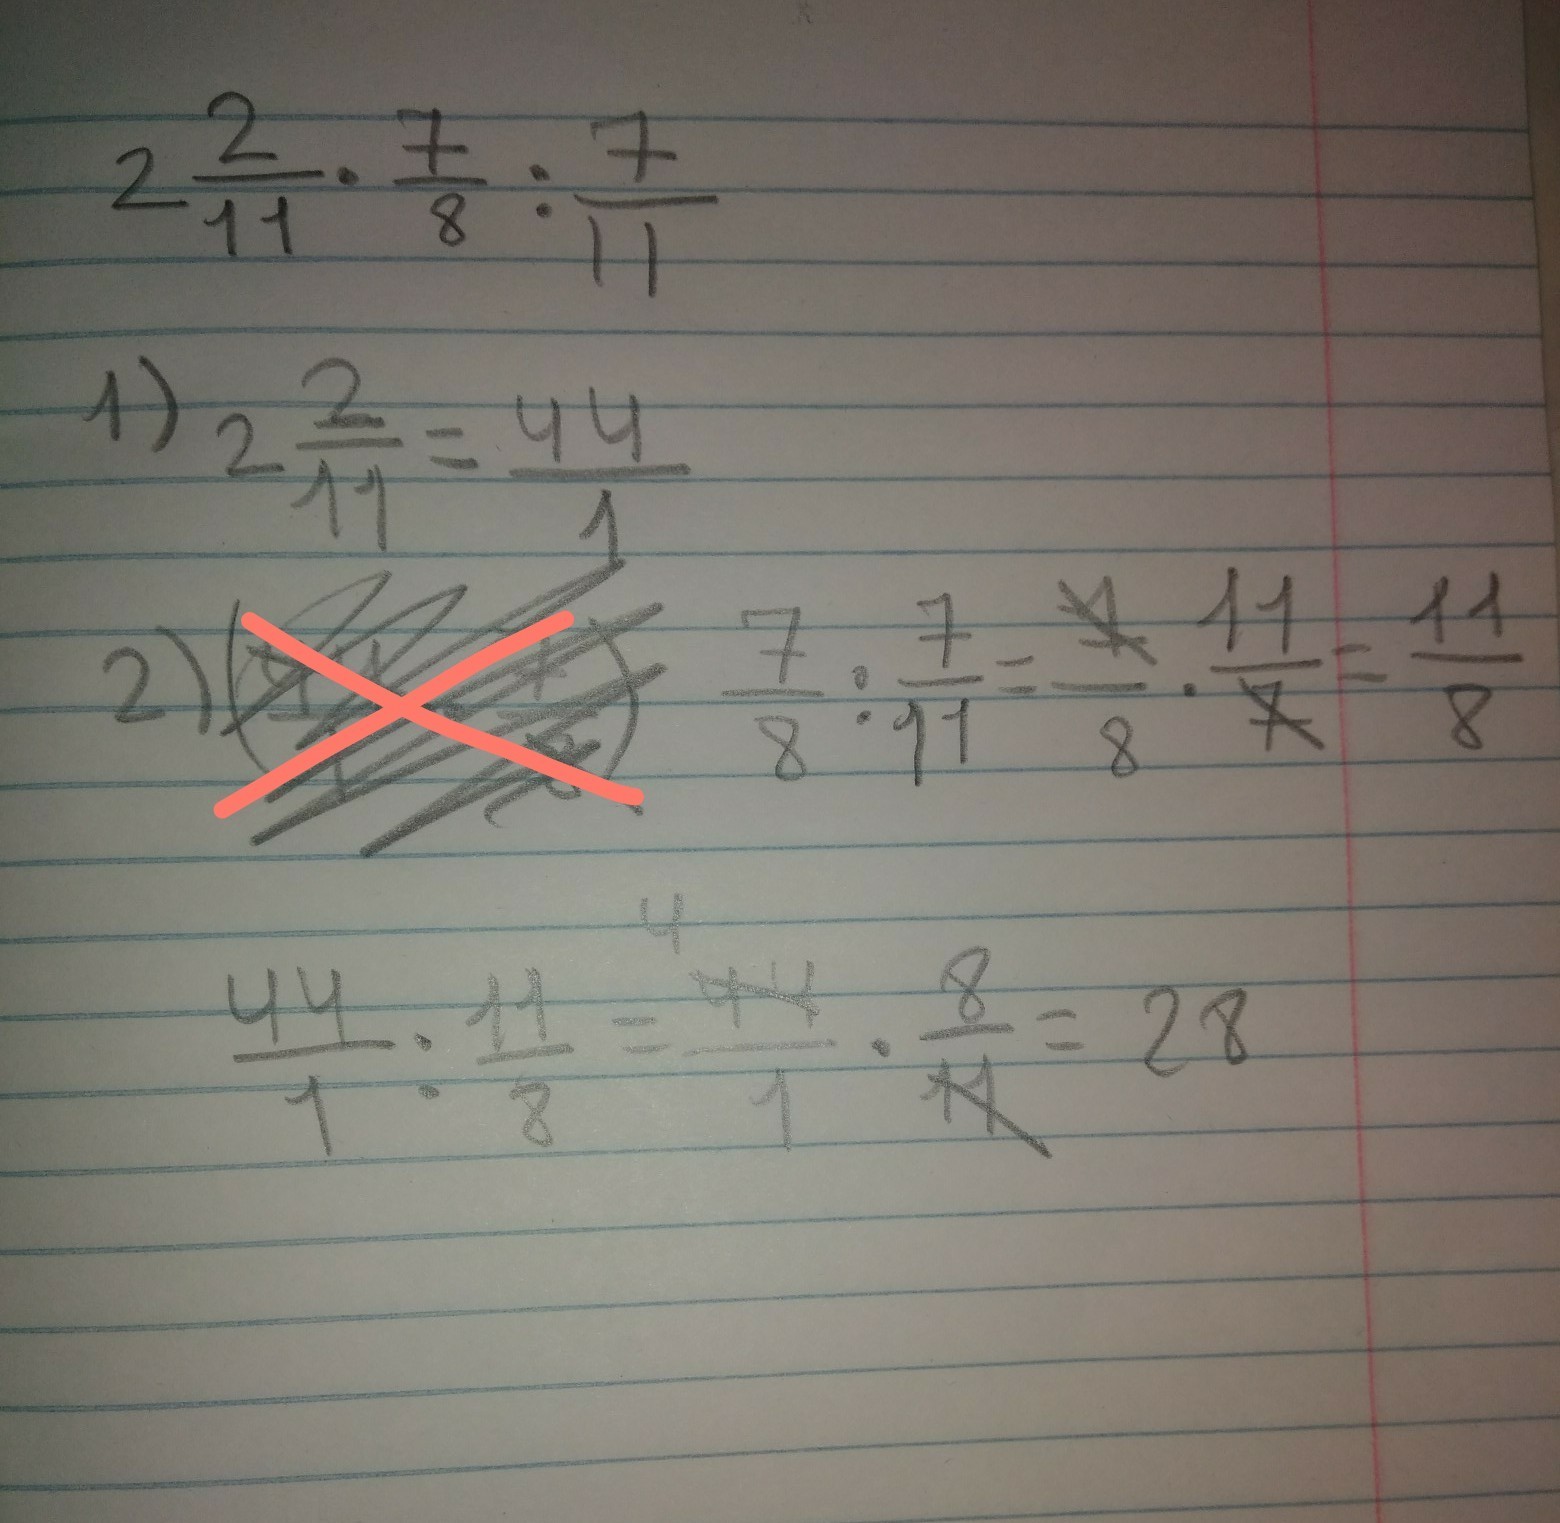 2 2/11 · 7/8 : 7/11
1) 2 2/11 = 44/1
2) 7/8 : 7/11 = 7/8 · 11/7 = 11/8
4
44/1 : 11/8 = 44/1 · 8/11 = 28